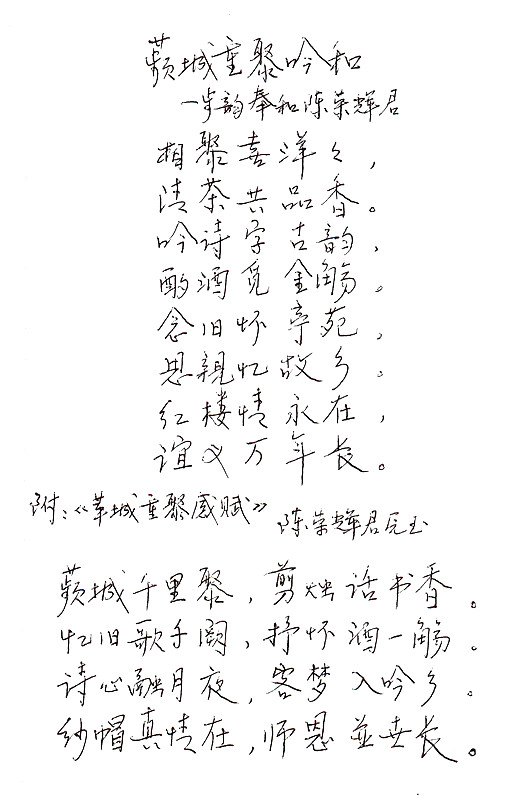 蘋城重聚吟和
—步韵奉和陈荣辉君
相聚喜洋々，
清茶共品香。
吟诗字古韵，
酌酒觅金觞。
念旧怀亭苑，
思親忆故乡。
红楼情永在，
谊义万年长。
附：《苹城重聚感赋》 陈荣辉君元玉
蘋城千里聚，剪烛话书香。
忆旧歌千阕，抒怀酒一觞。
诗心融月夜，客梦入吟乡。
纱帽真情在，师恩並世长。